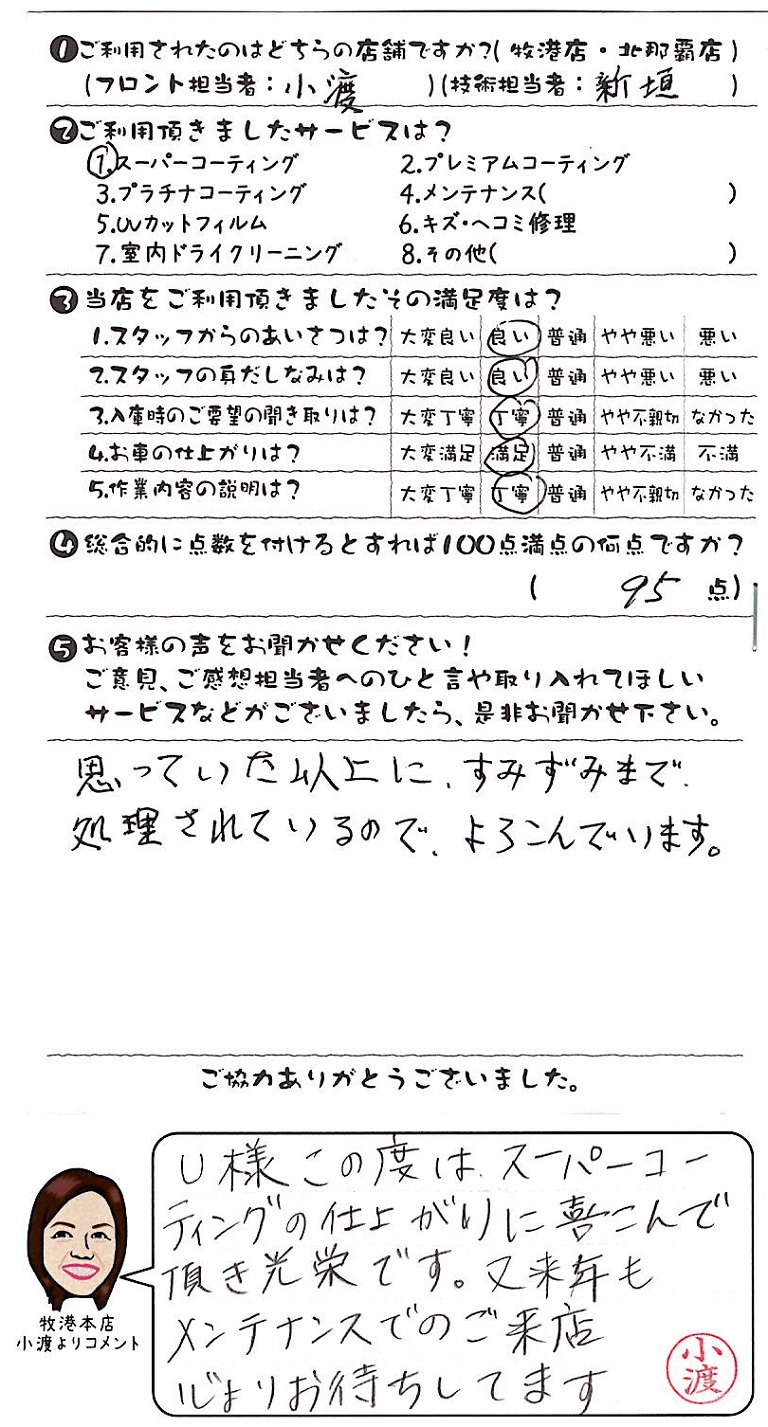 ❶ご利用されたのはどちらの店舗ですか?(牧港店・北那覇店)
(フロント担当者:小渡 )(技術担当者:新垣 )
❷ご利用頂きましたサービスは?
1.スーパーコーティング 2.プレミアムコーティング
3.プラチナコーティング 4.メンテナンス( )
5.UVカットフィルム 6.キズ・ヘコミ修理
7.室内ドライクリーニング 8.その他( )
❸当店をご利用頂きましたその満足度は?
1.スタッフからのあいさつは? 大変良い 良い 普通 やや悪い 悪い
2.スタッフの身だしなみは? 大変良い 良い 普通 やや悪い 悪い
3.入庫時のご要望の聞き取りは? 大変丁寧 丁寧 普通 やや不親切 なかった
4.お車の仕上がりは? 大変満足 満足 普通 やや不満 不満
5.作業内容の説明は? 大変丁寧 丁寧 普通 やや不親切 なかった
❹総合的に点数を付けるとすれば100点満点の何点ですか?
( 95 点)
❺お客様の声をお聞かせください!
ご意見、ご感想担当者へのひと言や取り入れてほしい
サービスなどがございましたら、是非お聞かせ下さい。
思っていた以上に、すみずみまで、
処理されているので、よろこんでいます。
ご協力ありがとうございました。
U様この度は、スーパーコー
ティングの仕上がりに喜こんで
頂き光栄です。又来年も
メンテナンスでのご来店
心よりお待ちしてます
小渡
牧港本店
小渡よりコメント